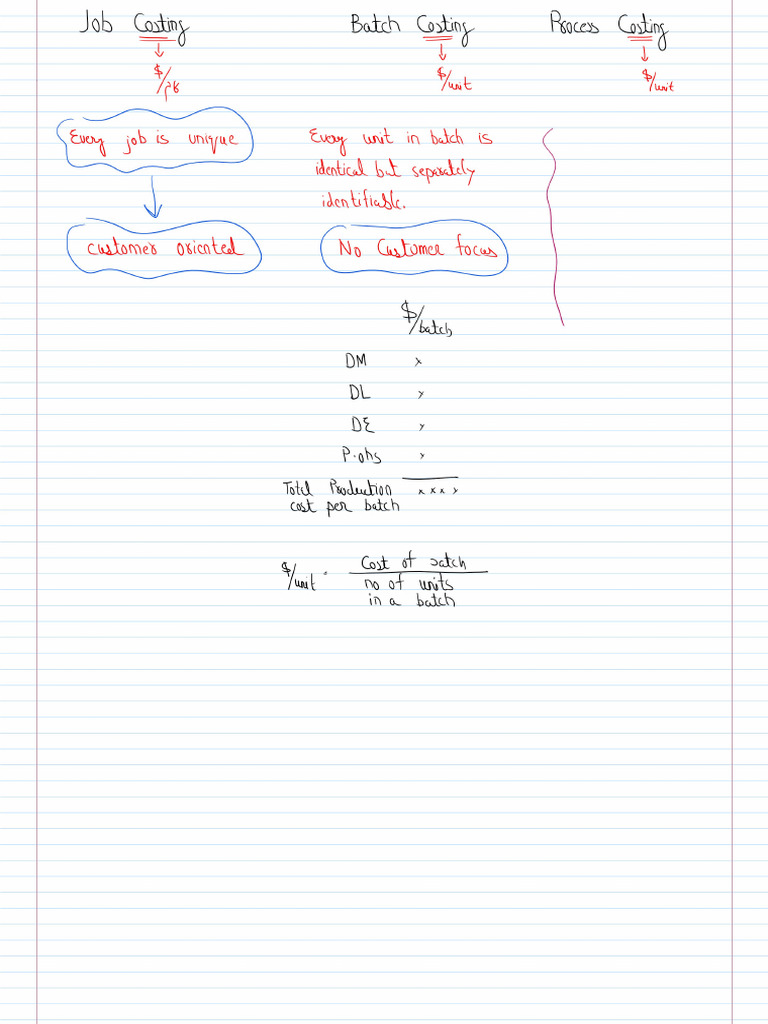 Job Costing
$/
Every job is unique
customer oriented
Batch Costing
$/unit
Every unit in batch is
identical but separately
identifiable.
No Customer focus
$/batch
DM x
DL x
DE x
P.ohs x
Total Production x x x x
cost per batch
$/unit = Cost of batch
no of units
in a batch
Process Costing
$/unit